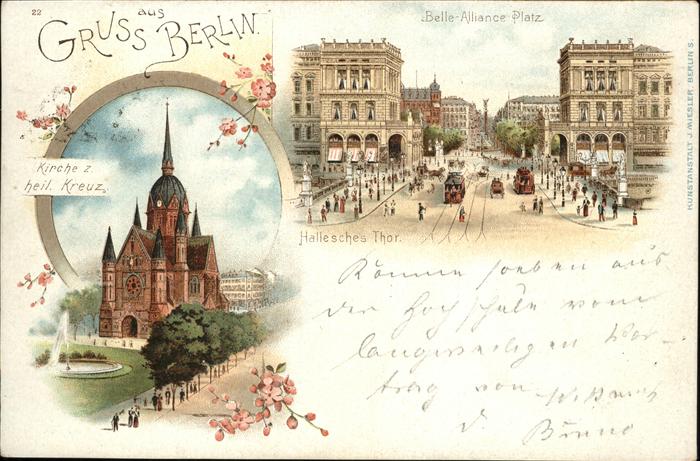 22
Gruss aus Berlin.
Belle-Alliance Platz
Kirche z.
heil. Kreuz.
Hallesches Thor.
KUNSTANSTALT J. MIESLER, BERLIN S.
Komme soeben aus
der Hochschule vom
langweiligen Vor-
trag von
d. Bruno